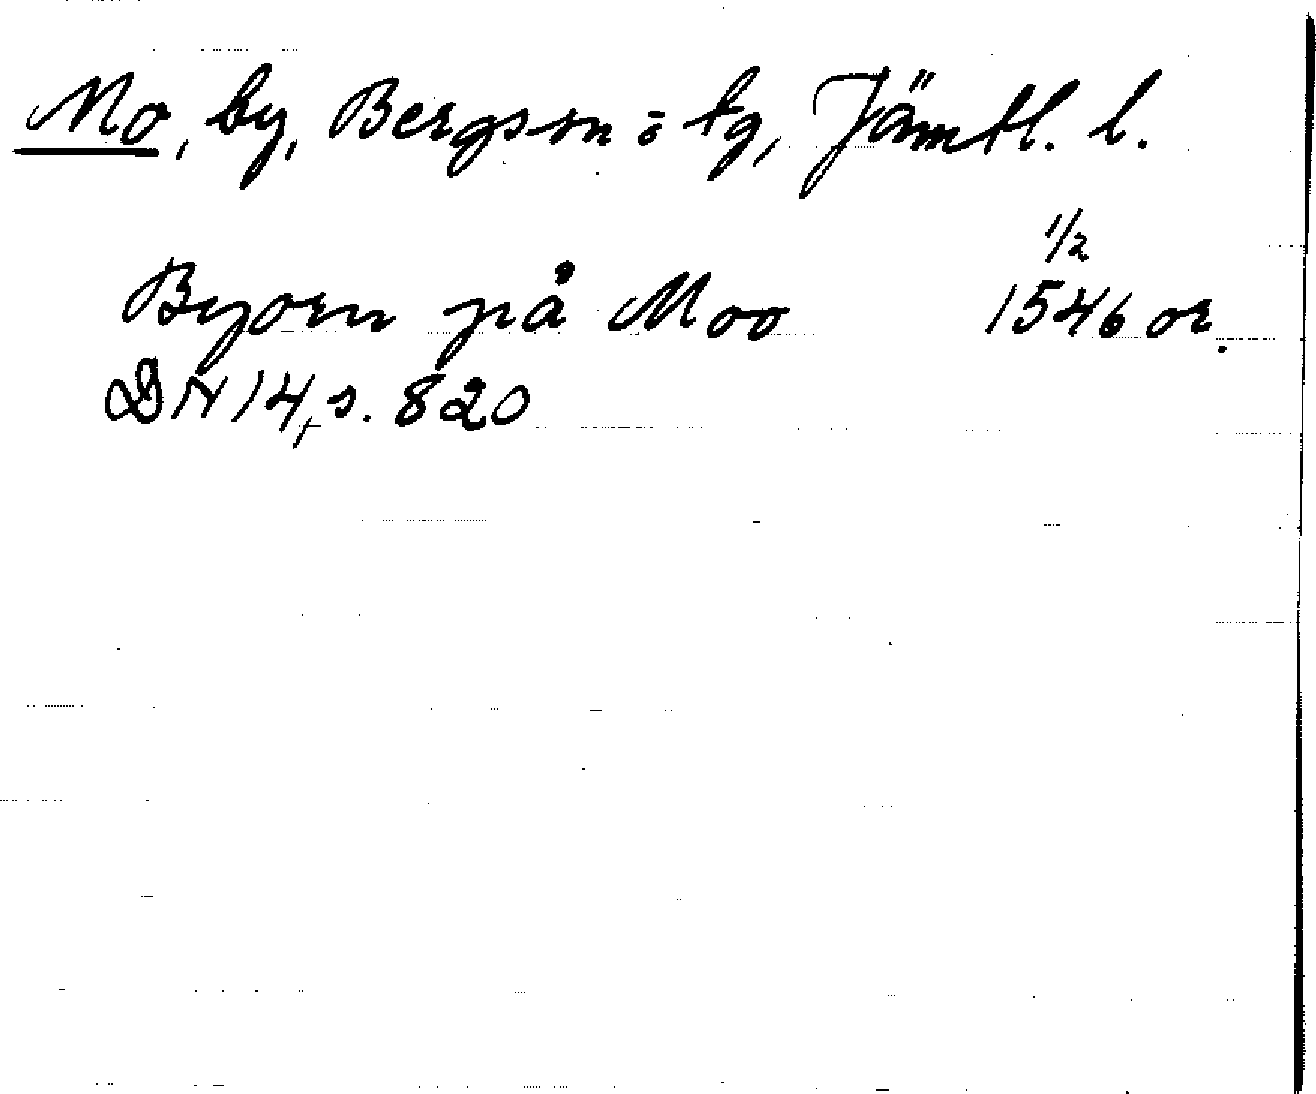 Mo, by, Bergs sn o tg, Jämtl. l.
1/2
Byorn på Moo 1546 or.
DN 14, s. 820